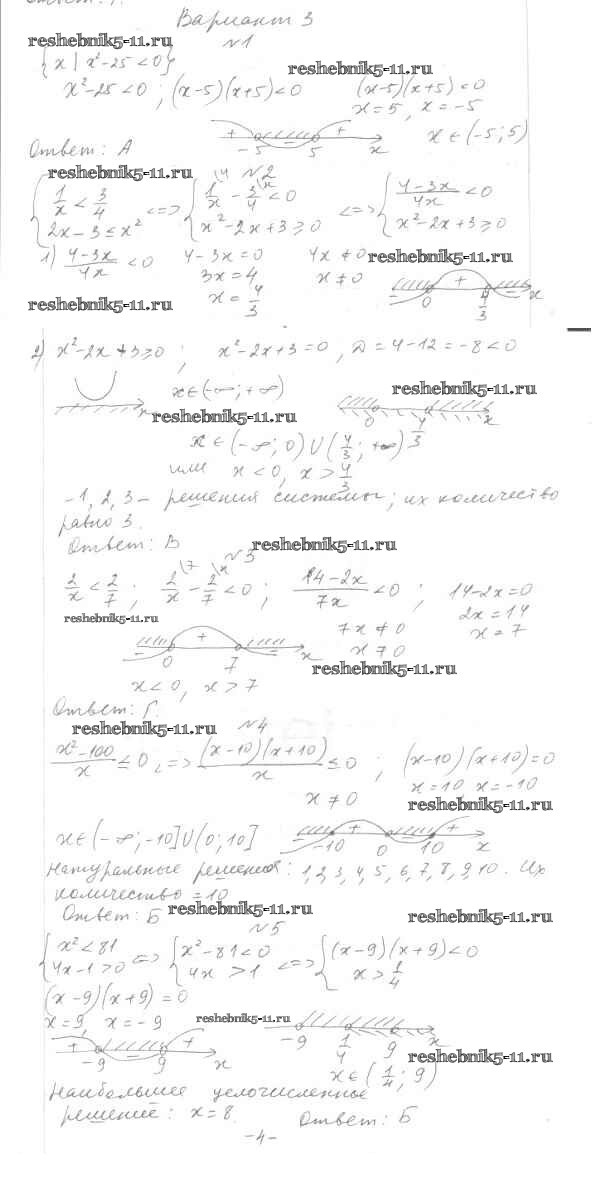 Вариант 3
reshebnik5-11.ru №1
{x | x²-25<0} reshebnik5-11.ru
x²-25<0 ; (x-5)(x+5)<0 (x-5)(x+5)=0
x=5, x=-5
+ - + -5 5 x x∈(-5;5)
Ответ: А
reshebnik5-11.ru №2
{ 1/x < 3/4 <=> { 1/x - 3/4 <0 <=> { (4-3x)/4x <0
2x-3≤x² x²-2x+3≥0 x²-2x+3≥0
1) (4-3x)/4x <0 4-3x=0 4x≠0 reshebnik5-11.ru
3x=4 x≠0
reshebnik5-11.ru x=4/3 - + - 0 4/3 x
2) x²-2x+3≥0 ; x²-2x+3=0, D=4-12=-8<0
x x∈(-∞;+∞) reshebnik5-11.ru
reshebnik5-11.ru 0 4/3 x
x∈(-∞;0)∪(4/3;+∞)
или x<0, x>4/3
-1, 2, 3 - решения системы; их количество
равно 3.
Ответ: В reshebnik5-11.ru
№3
2/x < 2/7 ; 2/x - 2/7 <0 ; (14-2x)/7x <0 ; 14-2x=0
reshebnik5-11.ru 7x≠0 2x=14
- + - 0 7 x x≠0 x=7
x<0, x>7 reshebnik5-11.ru
Ответ: Г.
reshebnik5-11.ru №4
(x²-100)/x ≤0 <=> (x-10)(x+10)/x ≤0 ; (x-10)(x+10)=0
x≠0 x=10 x=-10
reshebnik5-11.ru
x∈(-∞;-10]∪(0;10] - + - + -10 0 10 x
Натуральные решения: 1,2,3,4,5,6,7,8,9,10. Их
количество =10
Ответ: Б reshebnik5-11.ru reshebnik5-11.ru
№5
{ x²<81 <=> { x²-81<0 <=> { (x-9)(x+9)<0
4x-1>0 4x>1 x>1/4
(x-9)(x+9)=0
x=9, x=-9 reshebnik5-11.ru
+ - + -9 9 x -9 1/4 9 x
reshebnik5-11.ru
x∈(1/4;9)
Наибольшее целочисленное
решение: x=8. Ответ: Б
-4-